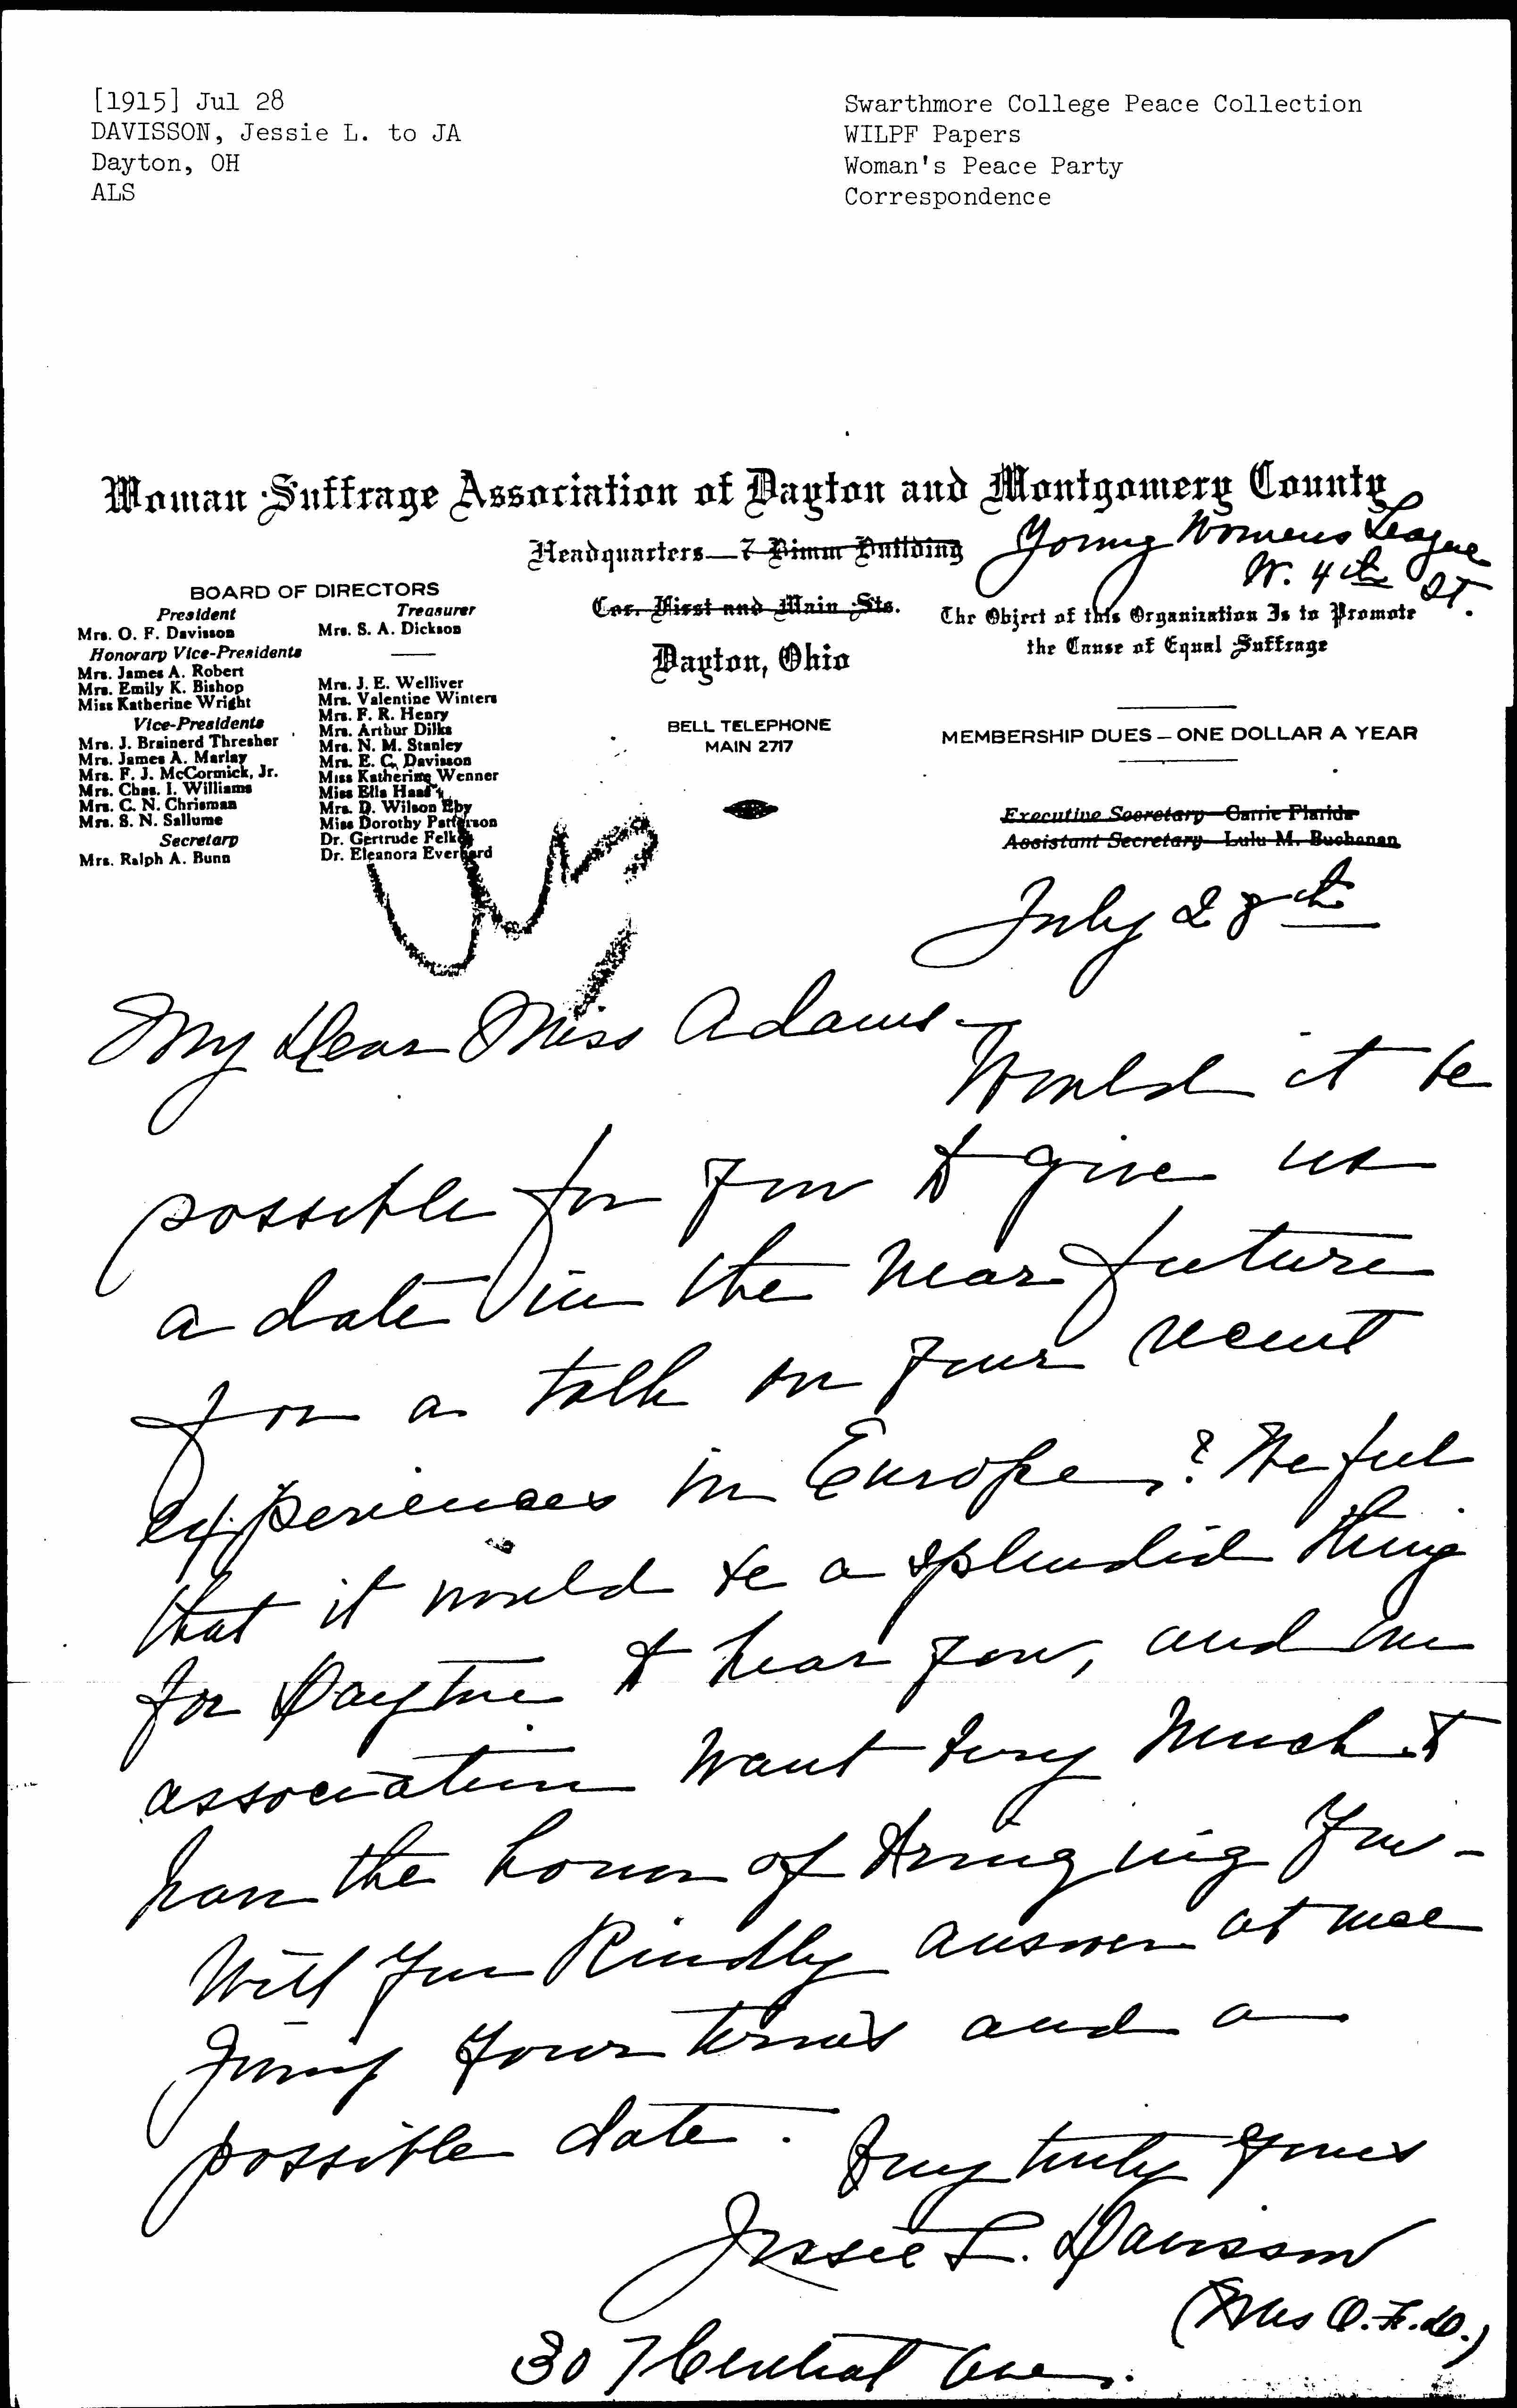 [1915] Jul 28
DAVISSON, Jessie L. to JA
Dayton, OH
ALS
Swarthmore College Peace Collection
WILPF Papers
Woman's Peace Party
Correspondence
Woman Suffrage Association of Dayton and Montgomery County
Headquarters—7 Bimm Building
Young Womens League
W. 4th St.
Cor. First and Main Sts.
Dayton, Ohio
BELL TELEPHONE
MAIN 2717
The Object of this Organization Is to Promote
the Cause of Equal Suffrage
MEMBERSHIP DUES – ONE DOLLAR A YEAR
Executive Secretary Carrie Florida
Assistant Secretary Lulu M. Buchanan
BOARD OF DIRECTORS
President
Mrs. O. F. Davisson
Honorary Vice-Presidents
Mrs. James A. Robert
Mrs. Emily K. Bishop
Miss Katherine Wright
Vice-Presidents
Mrs. J. Brainerd Thresher
Mrs. James A. Marlay
Mrs. F. J. McCormick, Jr.
Mrs. Chas. I. Williams
Mrs. C. N. Chrisman
Mrs. S. N. Sallume
Secretary
Mrs. Ralph A. Bunn
Treasurer
Mrs. S. A. Dickson
Mrs. J. E. Welliver
Mrs. Valentine Winters
Mrs. F. R. Henry
Mrs. Arthur Dilks
Mrs. N. M. Stanley
Mrs. E. C. Davisson
Miss Katherine Wenner
Miss Ella Haas
Mrs. D. Wilson Eby
Miss Dorothy Patterson
Dr. Gertrude Felker
Dr. Eleanora Everhard
July 28th
My Dear Miss Adams—
Would it be
possible for you to give us
a date in the near future
for a talk on your recent
experiences in Europe? We feel
that it would be a splendid thing
for Dayton to hear you, and our
association want very much to
have the honor of bringing you—
Will you kindly answer at once
giving your terms and a
possible date.
Very truly yours
Jessie L. Davisson
(Mrs O.F.D.)
307 Central Ave.